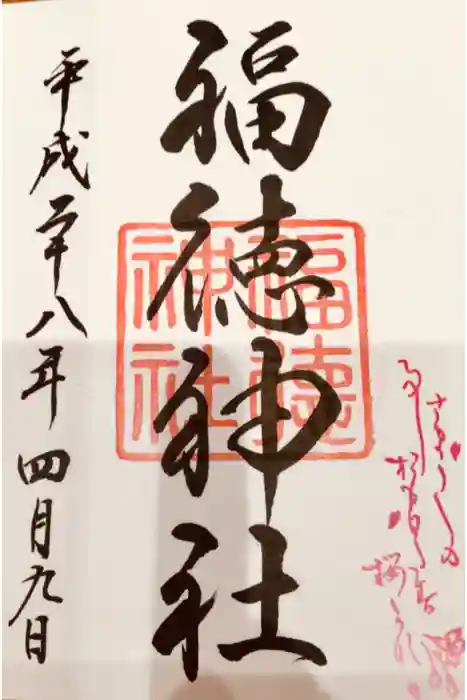 福徳神社
平成二十八年四月九日
福徳
神社